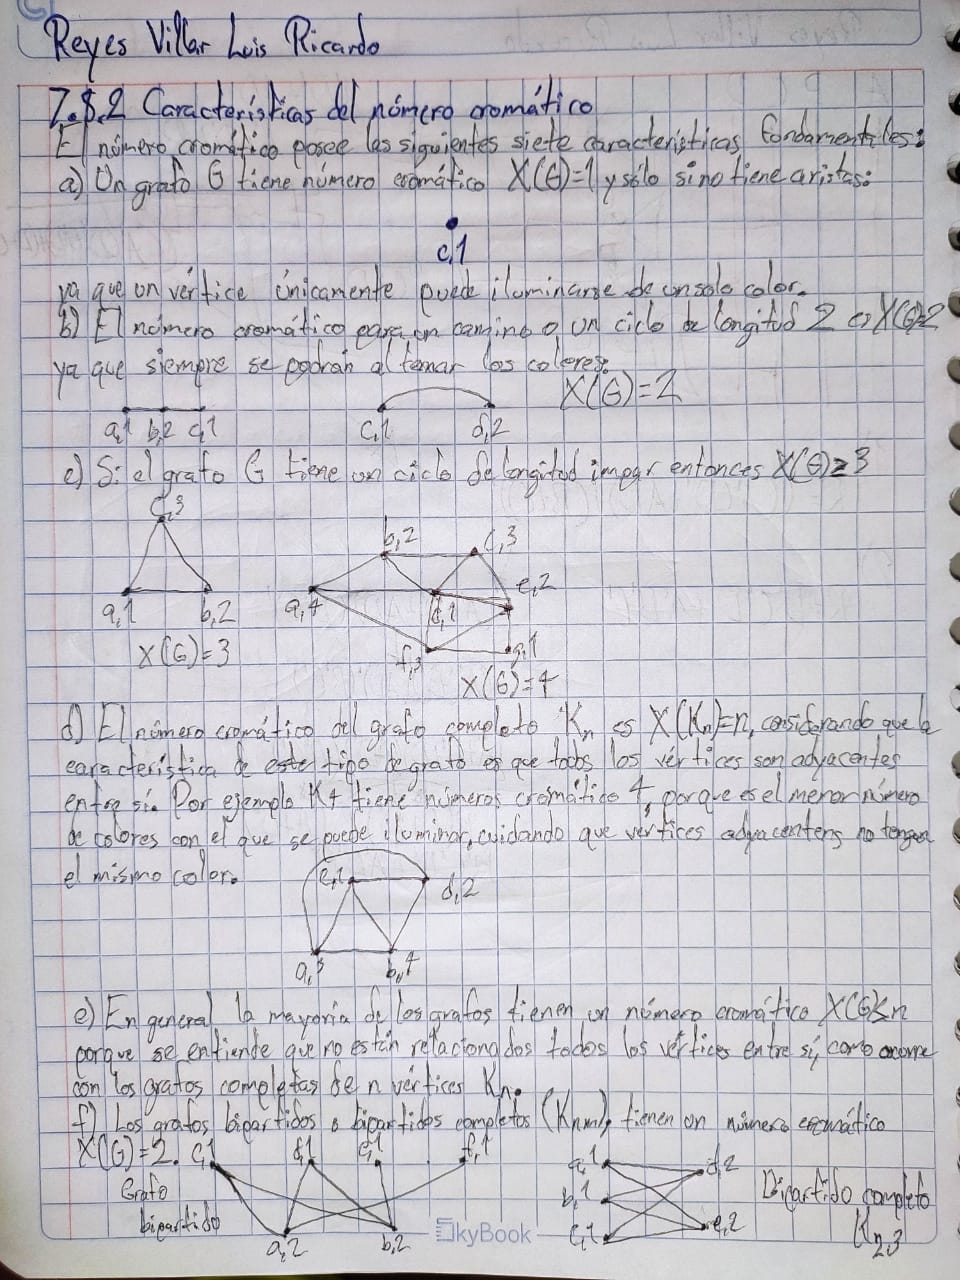 Reyes Villar Luis Ricardo
7.5.2 Características del número cromático
El número cromático posee las siguientes siete características fundamentales:
a) Un grafo G tiene número cromático X(G)=1 y sólo si no tiene aristas:
c,1
ya que un vértice únicamente puede iluminarse de un solo color.
b) El número cromático para un camino o un ciclo de longitud 2 es X(G)=2
ya que siempre se podrán alternar los colores:
X(G)=2
a,1 b,2 c,1 c,1 d,2
c) Si el grafo G tiene un ciclo de longitud impar entonces X(G)≥3
c,3
b,2 c,3
e,2
a,1 b,2 a,4 d,1
X(G)=3 f,3 g,1
X(G)=4
d) El número cromático del grafo completo Kn es X(Kn)=n, considerando que la
característica de este tipo de grafo es que todos los vértices son adyacentes
entre sí. Por ejemplo K4 tiene números cromático 4, porque es el menor número
de colores con el que se puede iluminar, cuidando que vértices adyacentens no tengan
el mismo color.
c,1 d,2
a,3 b,4
e) En general la mayoría de los grafos tienen un número cromático X(G)≤n
porque se entiende que no están relacionados todos los vértices entre sí, como ocurre
con los grafos completas de n vértices Kn.
f) Los grafos bipartidos o bipartidos completos (Knm), tienen un número cromático
X(G)=2. c,1 d,1 e,1 f,1 a,1 d,2
Grafo b,1 Bipartido completo
bipartido c,1 e,2 K2,3
a,2 b,2
SkyBook